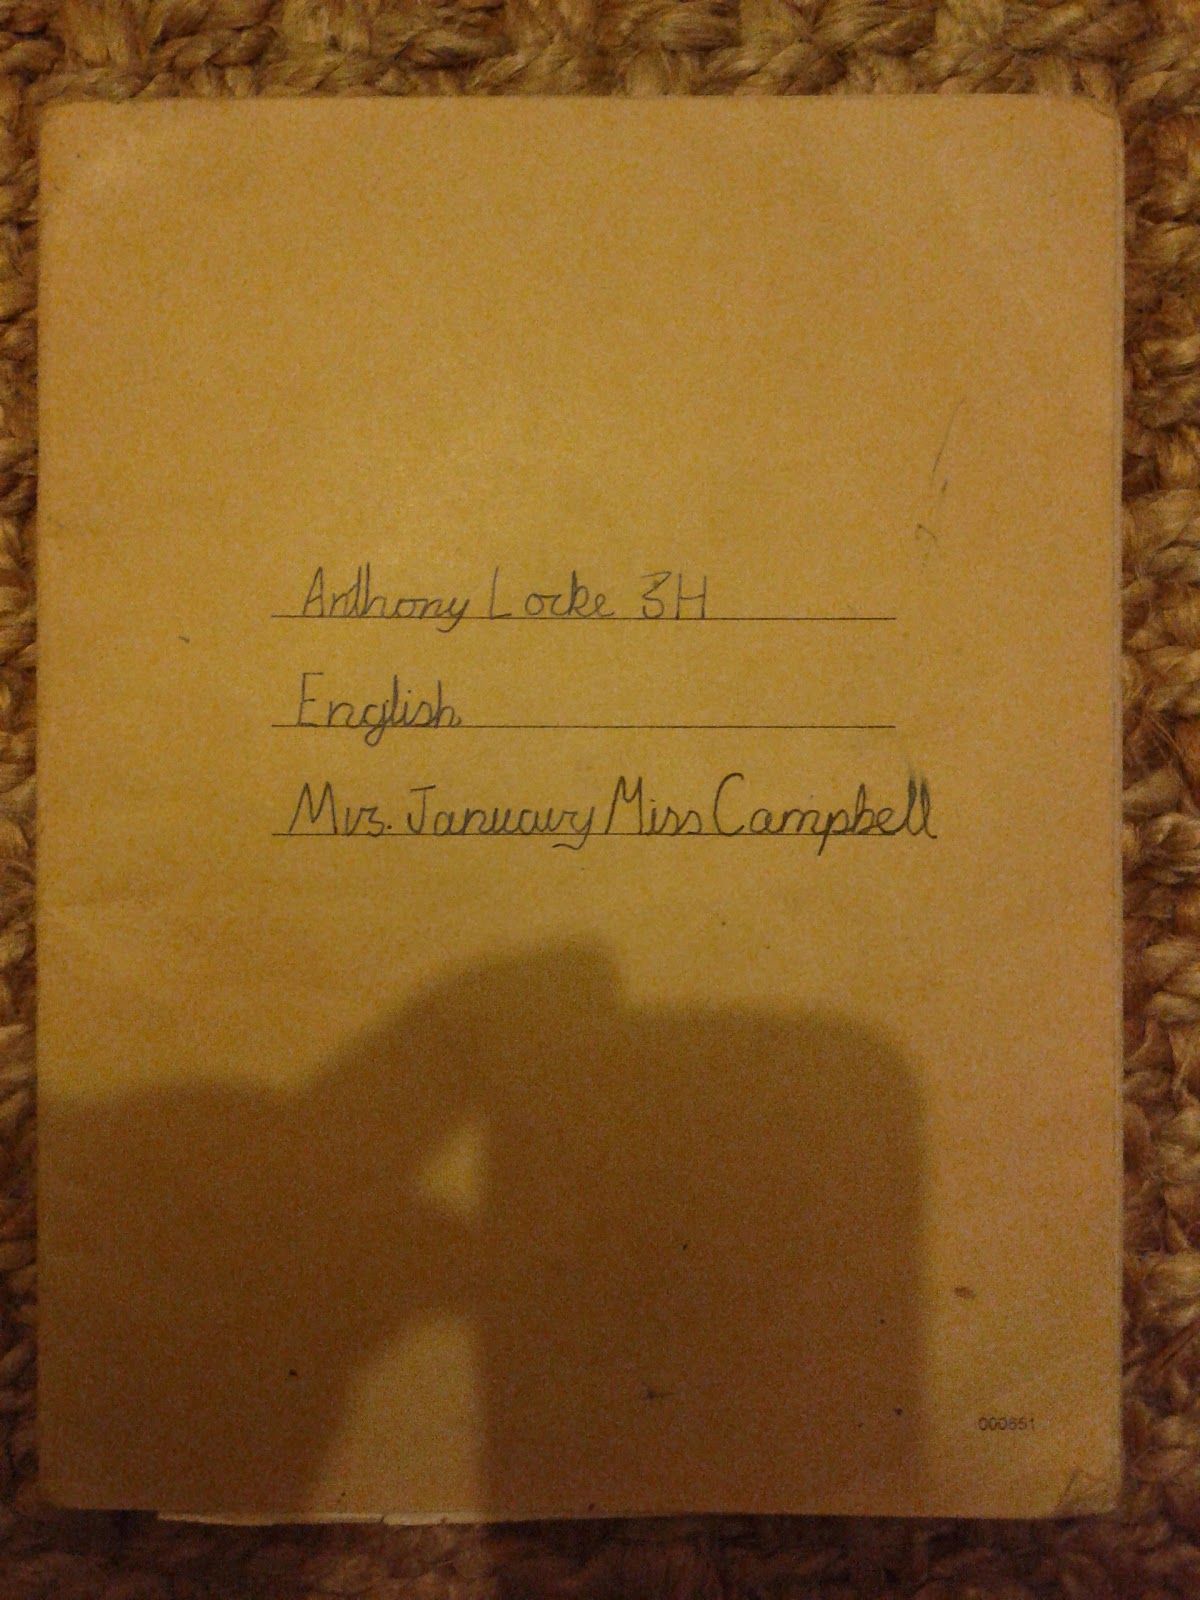 Anthony Locke 3H
English
Mrs. January Miss Campbell
000651